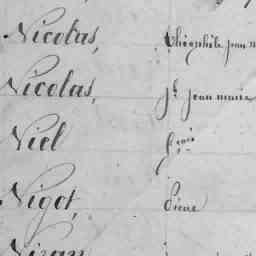 Nicolas, Théophile Jean M
Nicolas, Jh Jean Marie
Niel fçois
Nigot, Pierre
Nizan